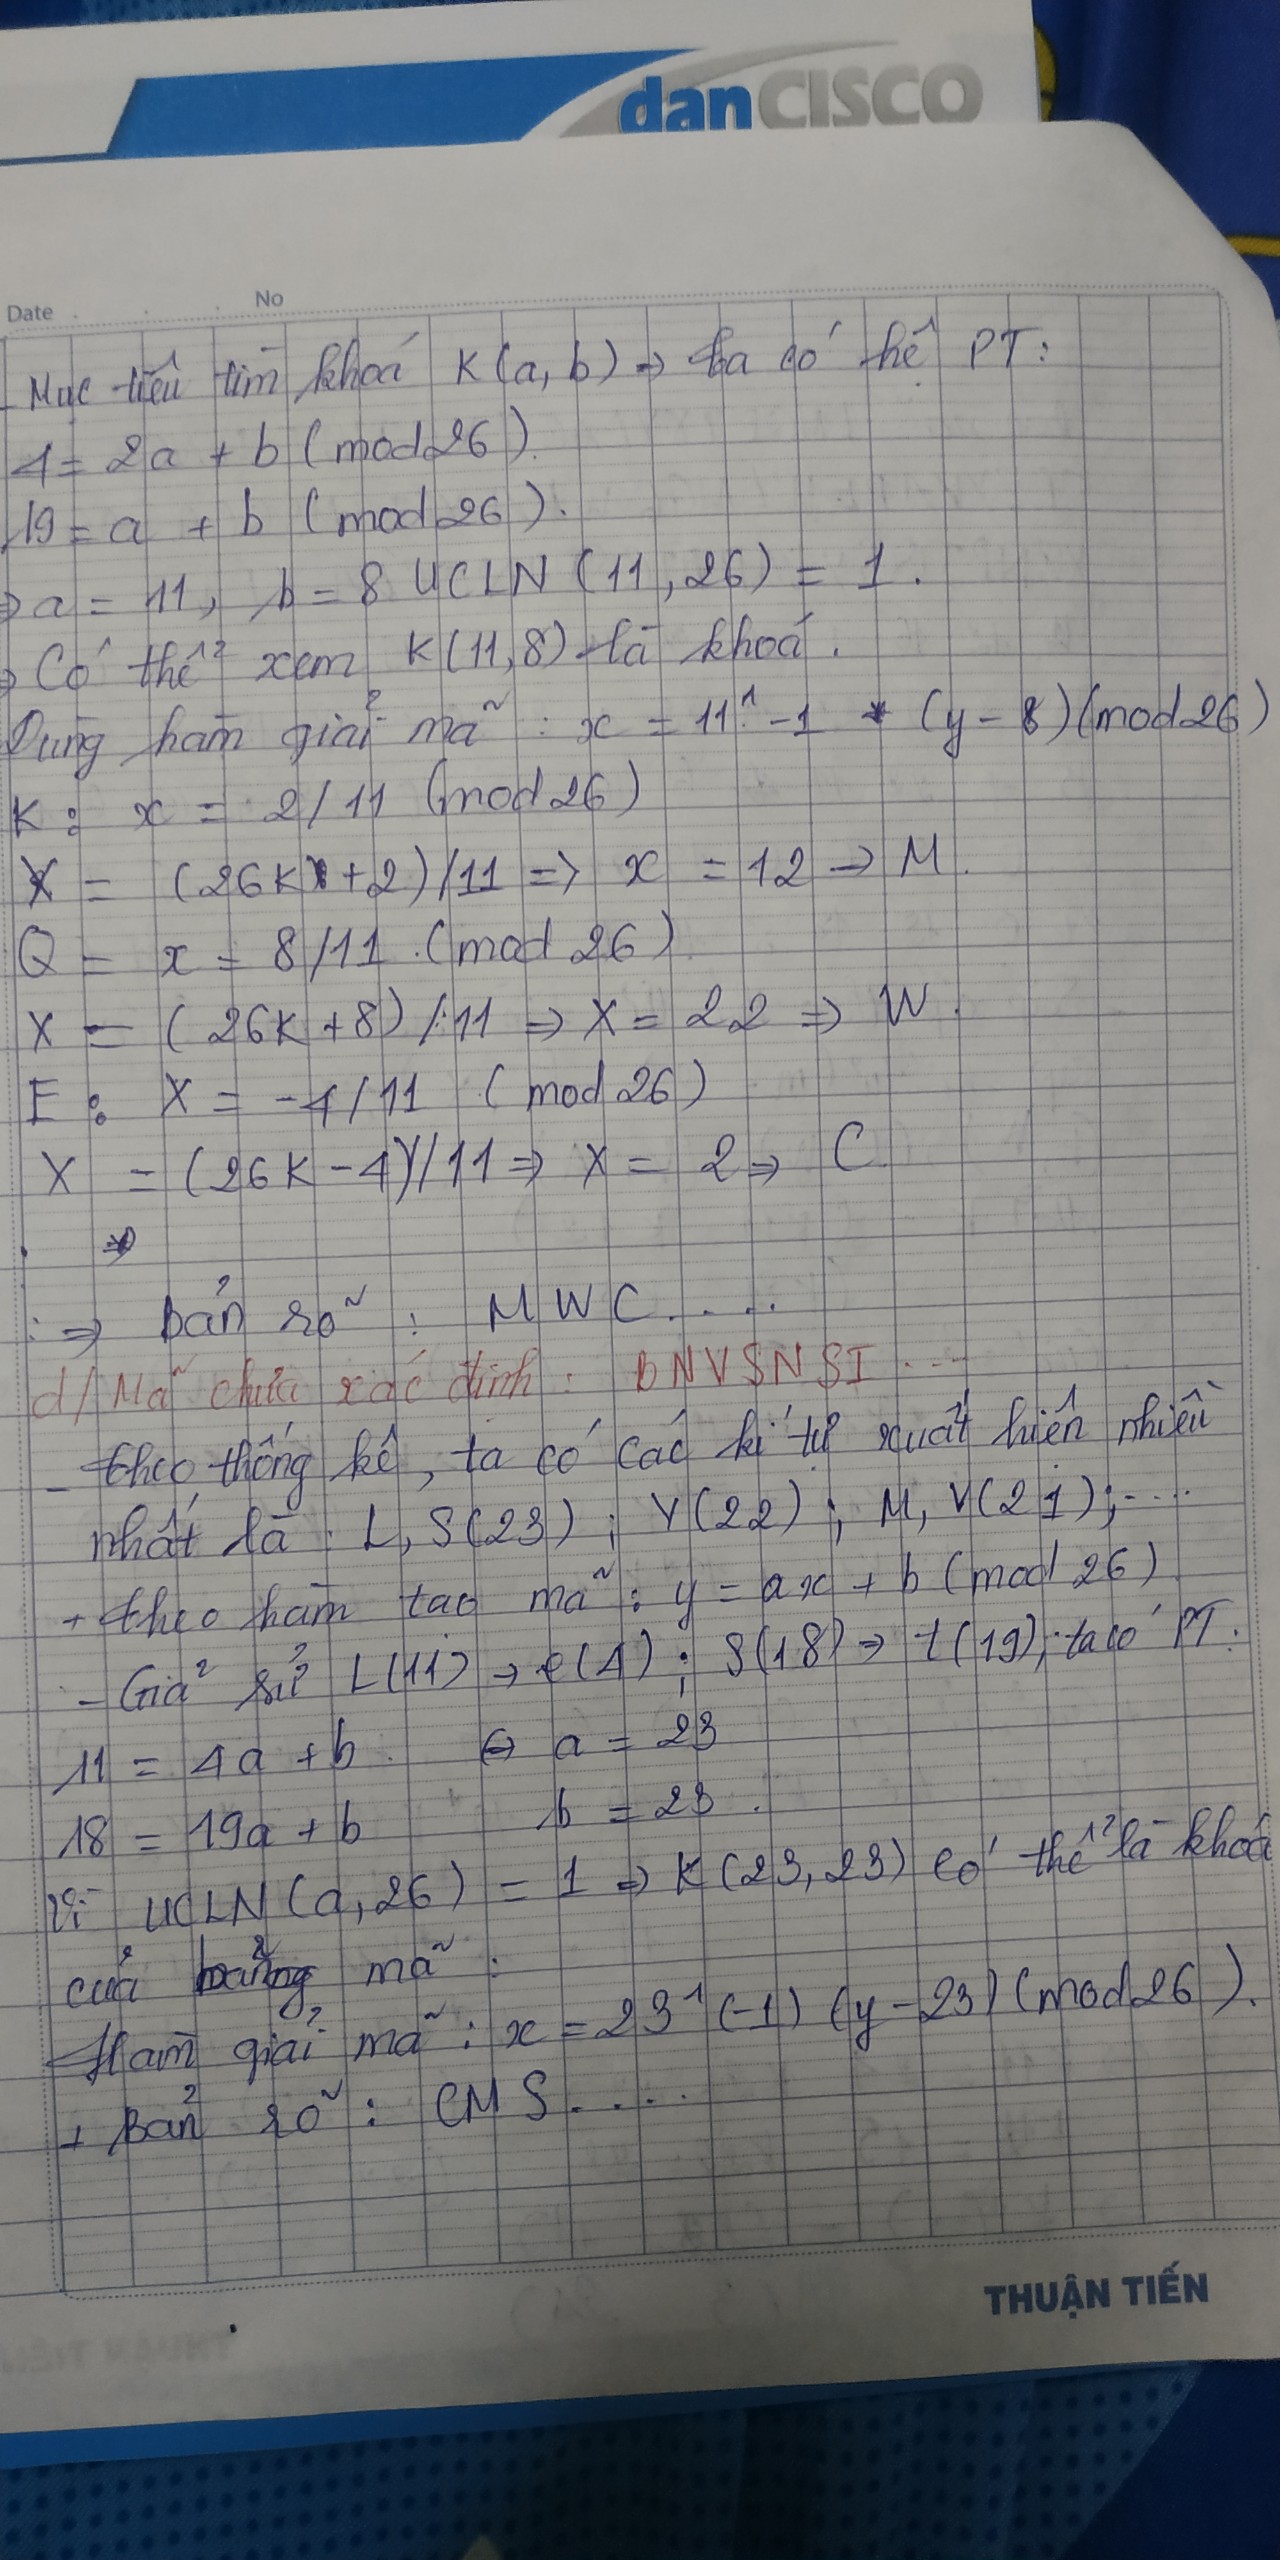 danCISCO
Date No
- Mục tiêu tìm khoá K(a, b) => ta có hệ PT:
4 = 2a + b (mod 26).
19 = a + b (mod 26).
=> a = 11, b = 8 UCLN (11, 26) = 1.
=> Có thể xem K(11,8) là khoá.
Dùng hàm giải mã : x = 11^-1 * (y - 8)(mod 26)
K: x = 2/11 (mod 26)
X = (26K + 2)/11 => x = 12 -> M.
Q = x = 8/11 (mod 26)
X = (26K + 8)/11 => X = 22 => W.
E: X = -4/11 (mod 26)
X = (26K - 4)/11 => X = 2 => C
=> Bản rõ : MWC....
d/ Mã chưa xác định : BNVSNSI ...
- theo thống kê, ta có các kí tự xuất hiện nhiều
nhất là : L, S(23) ; Y(22) ; M, V(21) ;....
+ theo hàm tạo mã : y = ax + b (mod 26)
- Giả sử L(11) -> e(4) ; S(18) => t(19); ta có PT:
11 = 4a + b <=> a = 23
18 = 19a + b b = 23.
Vì UCLN(a, 26) = 1 => K(23, 23) có thể là khoá
của bảng mã :
Hàm giải mã : x = 23^(-1) (y - 23)(mod 26).
+ Bản rõ : CMS....
THUẬN TIẾN